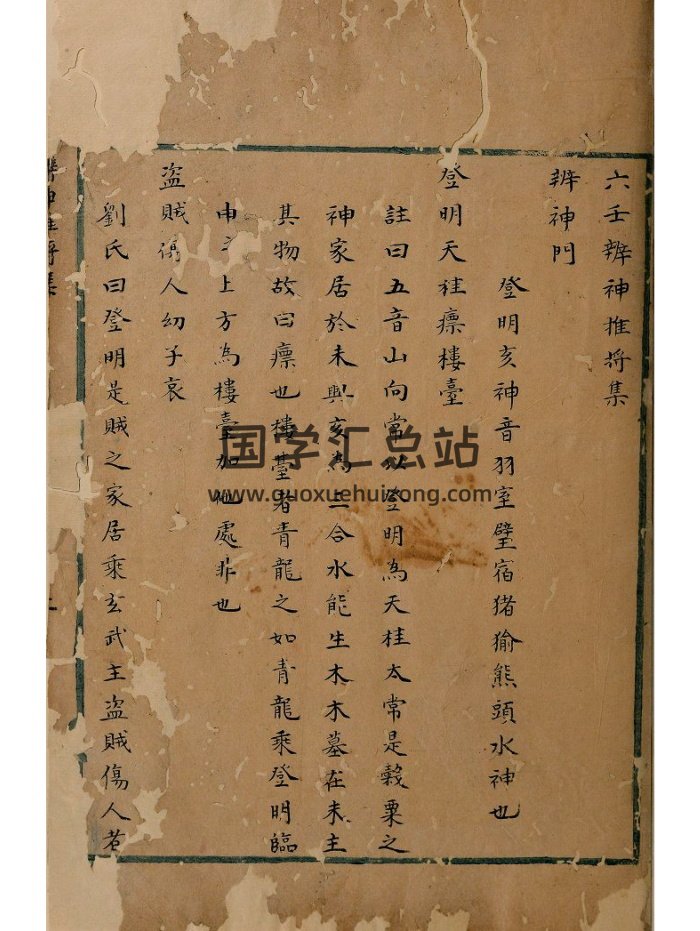 六壬辨神推将集
辨神門
登明亥神音羽室壁宿猪㺄熊頭水神也
登明天柱廪樓臺
註曰五音山向常以登明為天柱太常是穀粟之
神家居於未與亥為三合水能生木木墓在未主
其物故曰廪也樓臺者青龍之如青龍乘登明臨
申 上方為樓臺加他處非也
盗賊傷人幼子哀
劉氏曰登明是賊之家居乘玄武主盗賊傷人若
神推将集
国学汇总站
www.guoxuehuizong.com